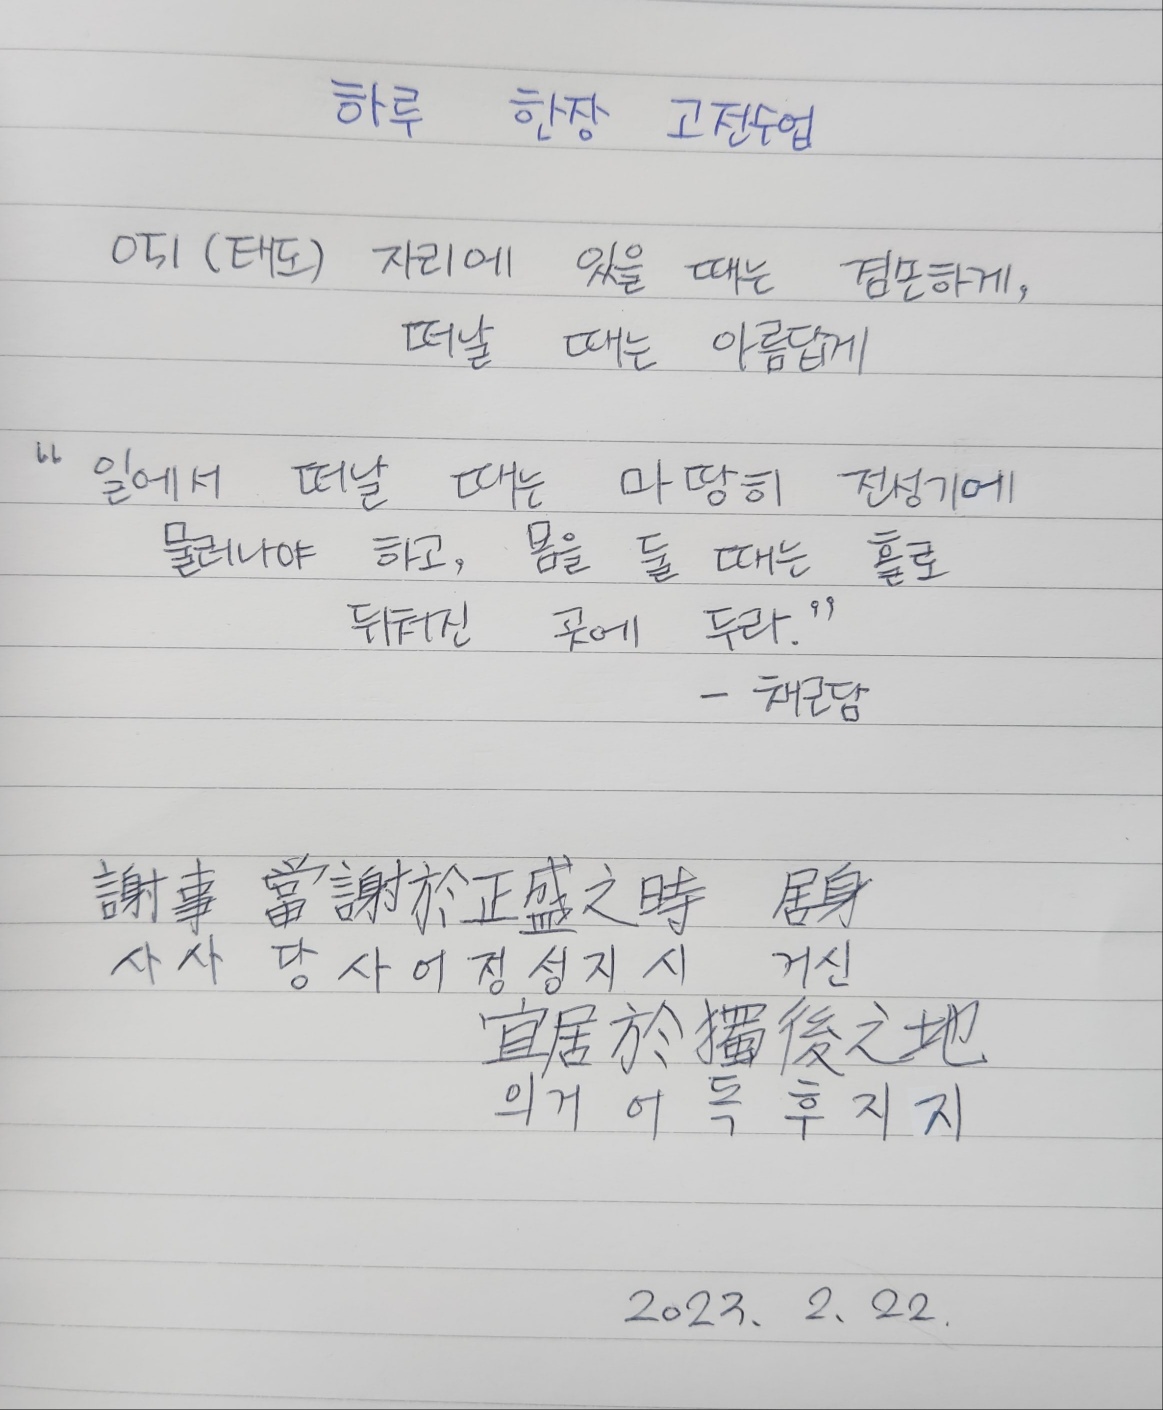 하루 한장 고전수업
051 (태도) 자리에 있을 때는 겸손하게,
떠날 때는 아름답게
“일에서 떠날 때는 마땅히 전성기에
물러나야 하고, 몸을 둘 때는 홀로
뒤쳐진 곳에 두라.”
- 채근담
謝事 當謝於正盛之時 居身
사사 당사어정성지시 거신
宜居於獨後之地
의거어독후지지
2023. 2. 22.